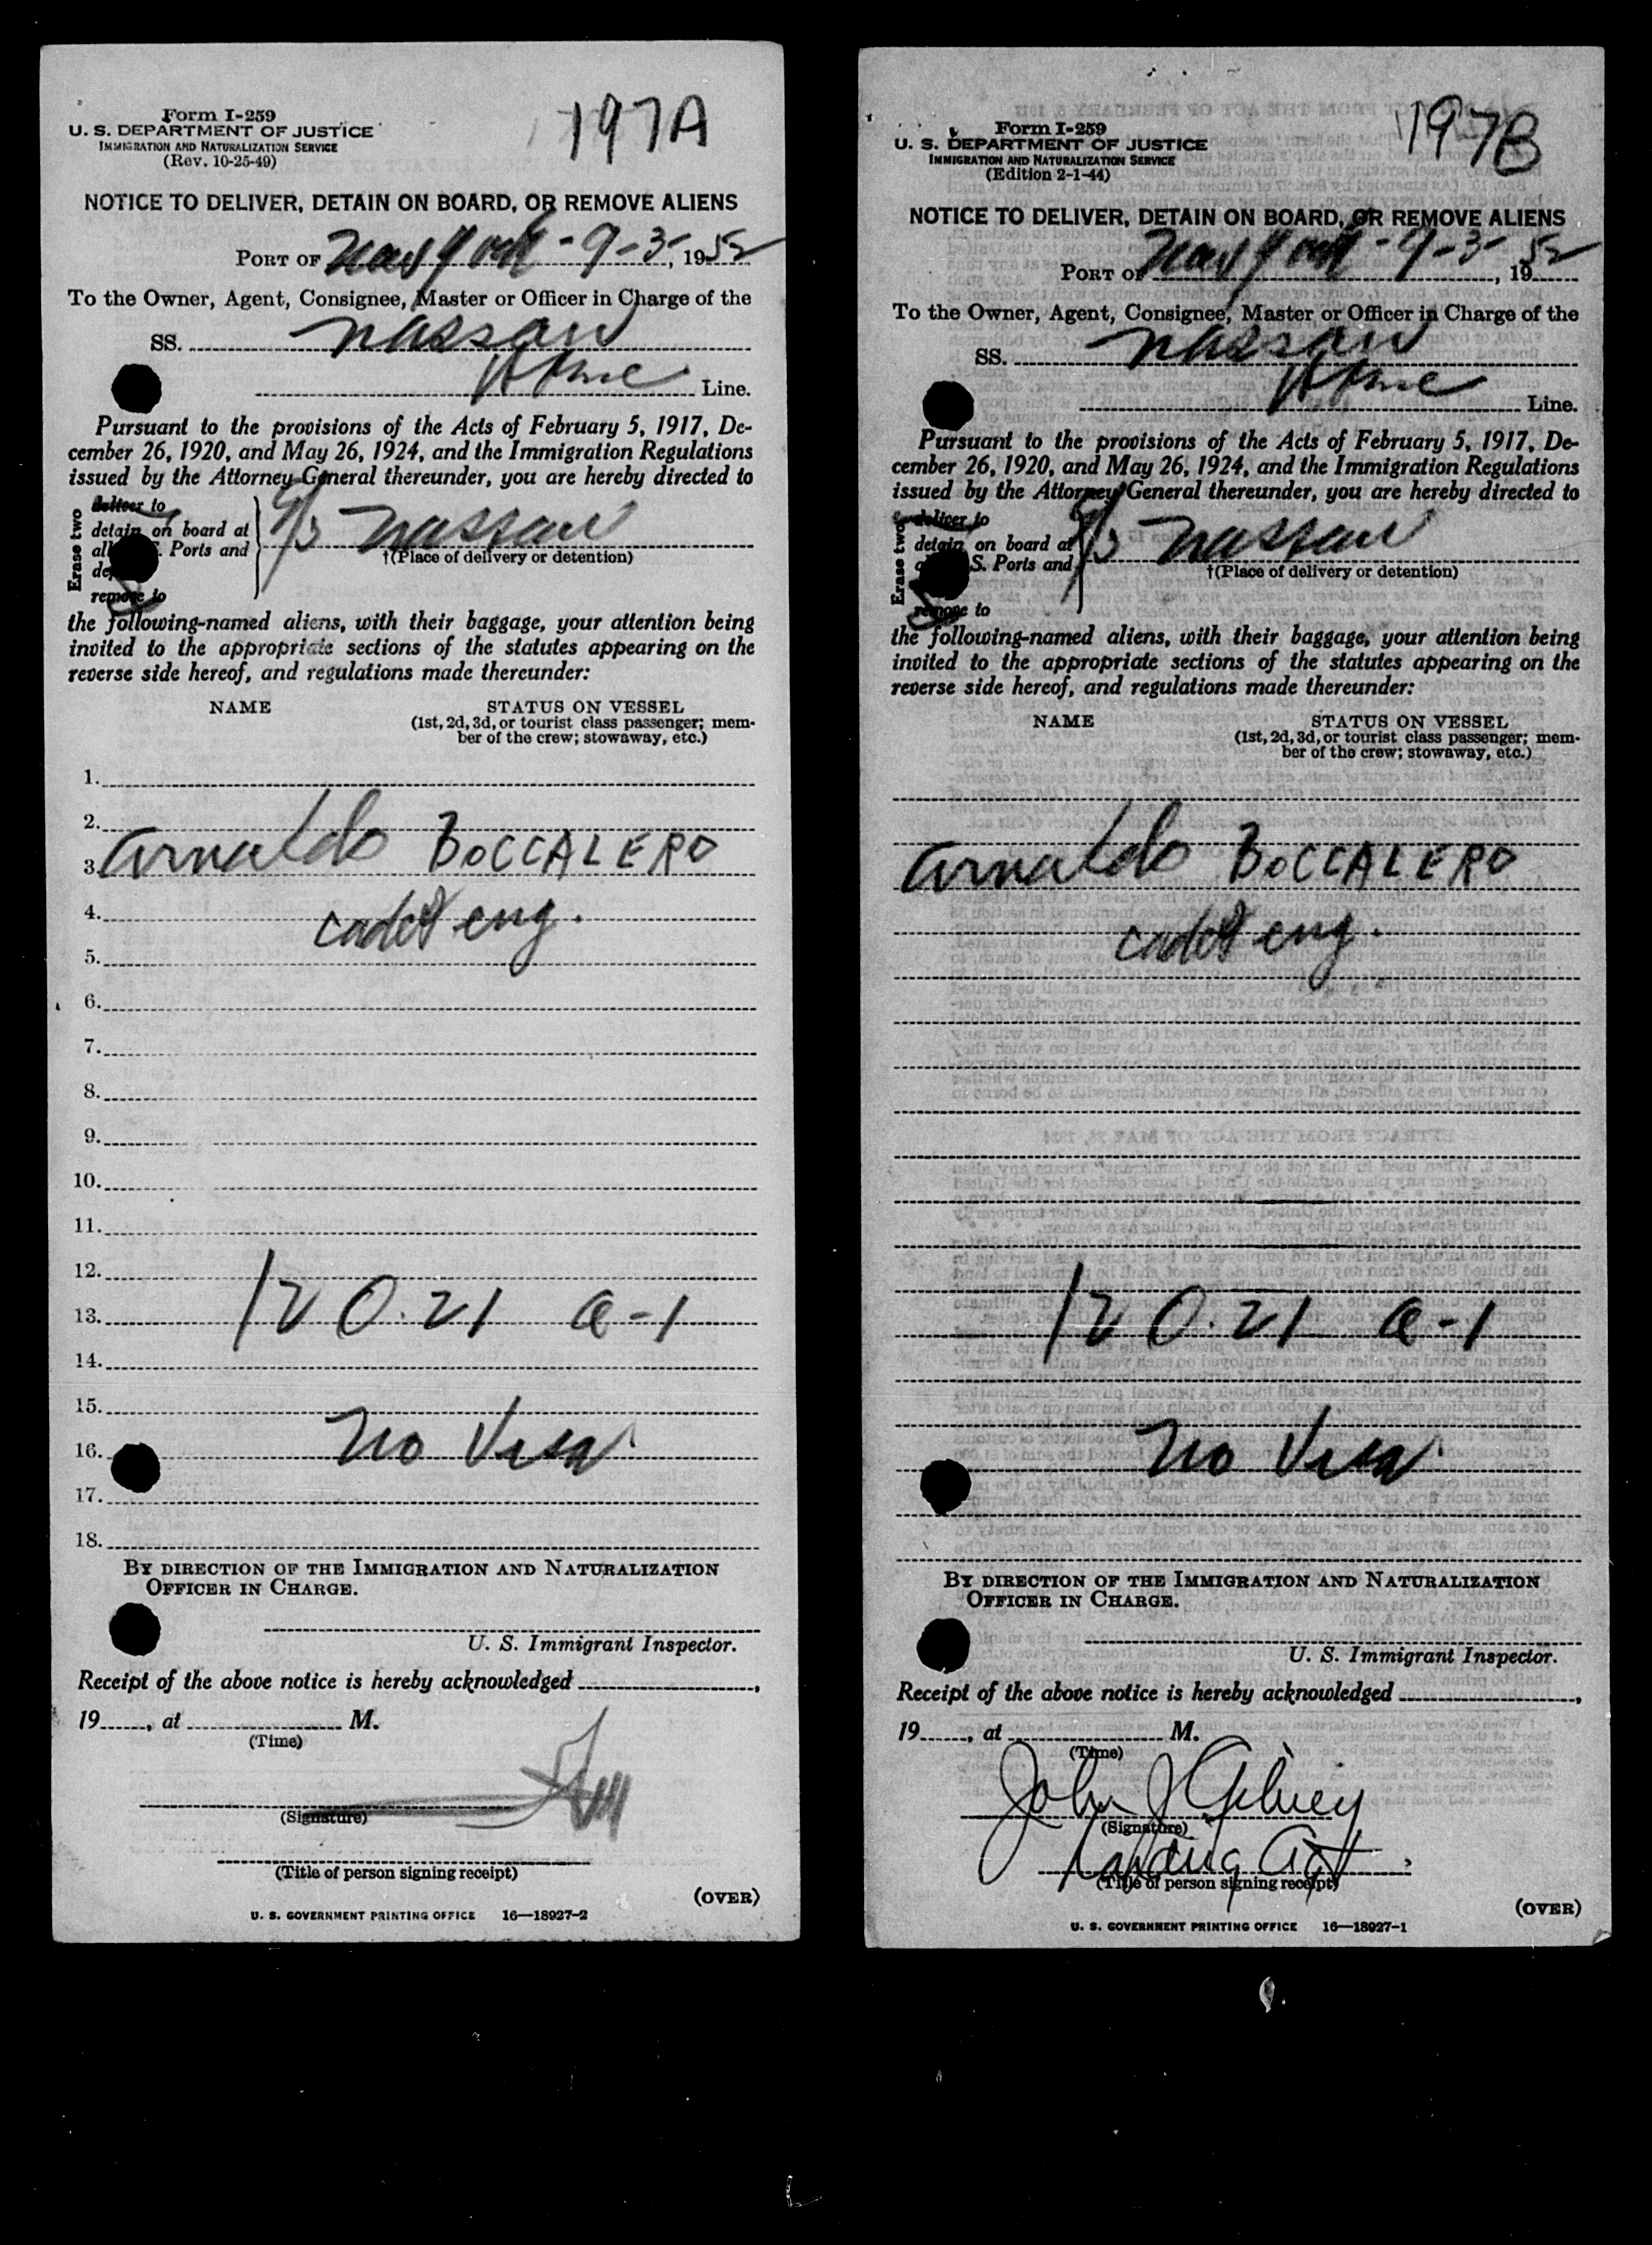 197A
Form I-259
U. S. DEPARTMENT OF JUSTICE
IMMIGRATION AND NATURALIZATION SERVICE
(Rev. 10-25-49)
NOTICE TO DELIVER, DETAIN ON BOARD, OR REMOVE ALIENS
PORT OF New York - 9-3-, 1952
To the Owner, Agent, Consignee, Master or Officer in Charge of the
SS. Nassau
Line.
Pursuant to the provisions of the Acts of February 5, 1917, De-
cember 26, 1920, and May 26, 1924, and the Immigration Regulations
issued by the Attorney General thereunder, you are hereby directed to
Erase two
deliver to
detain on board at
Ports and
remove to
Nassau
†(Place of delivery or detention)
the following-named aliens, with their baggage, your attention being
invited to the appropriate sections of the statutes appearing on the
reverse side hereof, and regulations made thereunder:
NAME STATUS ON VESSEL
(1st, 2d, 3d, or tourist class passenger; mem-
ber of the crew; stowaway, etc.)
1.
2.
3. Arnaldo BOCCALERO
4. cadet eng.
5.
6.
7.
8.
9.
10.
11.
12.
13. 120.21 a-1
14.
15.
16. No Visa
17.
18.
BY DIRECTION OF THE IMMIGRATION AND NATURALIZATION
OFFICER IN CHARGE.
U. S. Immigrant Inspector.
Receipt of the above notice is hereby acknowledged ,
19 , at M.
(Time)
(Signature)
(Title of person signing receipt)
(OVER)
U. S. GOVERNMENT PRINTING OFFICE 16—18927-2
197B
Form I-259
U. S. DEPARTMENT OF JUSTICE
IMMIGRATION AND NATURALIZATION SERVICE
(Edition 2-1-44)
NOTICE TO DELIVER, DETAIN ON BOARD, OR REMOVE ALIENS
PORT OF New York - 9-3-, 1952
To the Owner, Agent, Consignee, Master or Officer in Charge of the
SS. Nassau
Line.
Pursuant to the provisions of the Acts of February 5, 1917, De-
cember 26, 1920, and May 26, 1924, and the Immigration Regulations
issued by the Attorney General thereunder, you are hereby directed to
Erase two
deliver to
detain on board at
S. Ports and
remove to
Nassau
†(Place of delivery or detention)
the following-named aliens, with their baggage, your attention being
invited to the appropriate sections of the statutes appearing on the
reverse side hereof, and regulations made thereunder:
NAME STATUS ON VESSEL
(1st, 2d, 3d, or tourist class passenger; mem-
ber of the crew; stowaway, etc.)
Arnaldo BOCCALERO
cadet eng.
120.21 a-1
No Visa
BY DIRECTION OF THE IMMIGRATION AND NATURALIZATION
OFFICER IN CHARGE.
U. S. Immigrant Inspector.
Receipt of the above notice is hereby acknowledged ,
19 , at M.
(Time)
John J
(Signature)
(Title of person signing receipt)
(OVER)
U. S. GOVERNMENT PRINTING OFFICE 16—18927-1